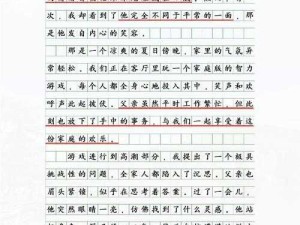 次，我却看到了他完全不同于平常的一面，那
是他发自内心的笑容。
那是一个凉爽的夏日傍晚，家里的气氛异
常轻松，我们正在客厅里玩一个有趣的智力
游戏，每个人都全身心地投入其中，笑声和欢
呼声此起彼伏。父亲虽然平时工作繁忙，但此
刻也放下了手中的事务，与我们一起享受着这
份家庭的欢乐。
游戏进行到高潮部分，我提出了一个颇具
挑战性的问题，全家人都陷入了沉思。父亲也
眉头紧锁，似乎在思考着答案。过了一会儿，
他突然眼睛一亮，仿佛找到了什么灵感。他站